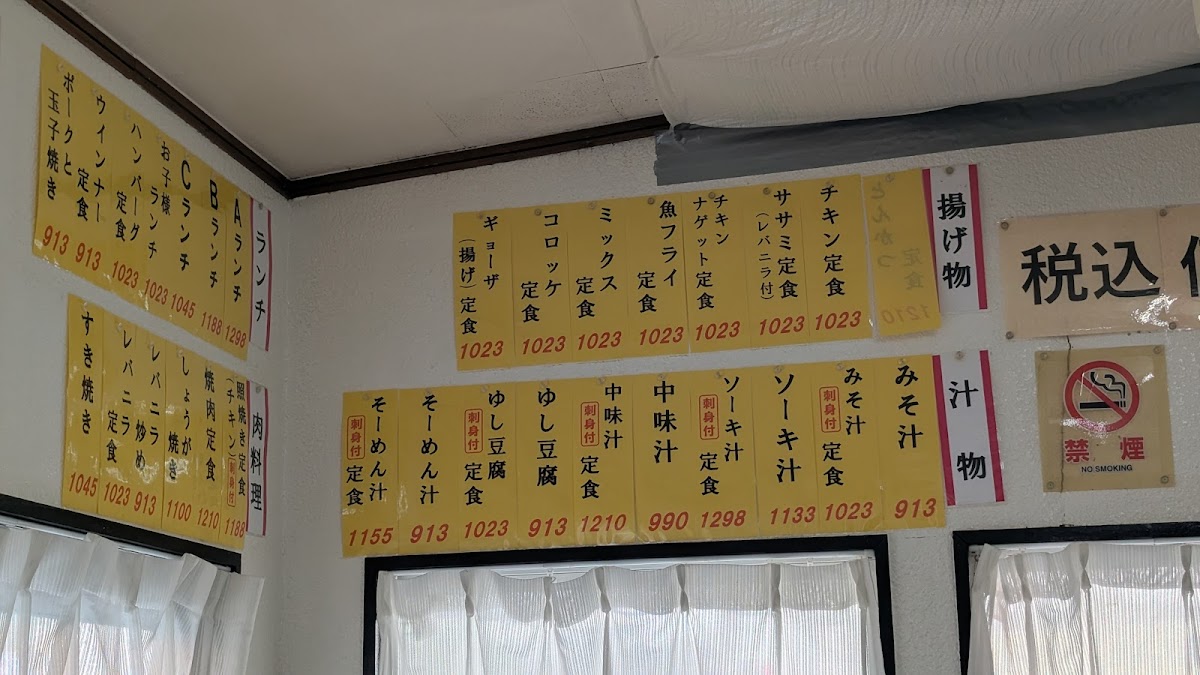 ランチ
Aランチ 1298
Bランチ 1188
Cランチ 1045
お子様ランチ 1023
ハンバーグ定食 1023
ウインナー定食 913
ポークと玉子焼き 913
肉料理
照焼き定食（チキン）刺身付 1188
焼肉定食 1210
しょうが焼き 1100
レバニラ炒め 913
レバニラ定食 1023
すき焼き 1045
揚げ物
とんかつ定食 1210
チキン定食 1023
ササミ定食（レバニラ付） 1023
チキンナゲット定食 1023
魚フライ定食 1023
ミックス定食 1023
コロッケ定食 1023
ギョーザ（揚げ）定食 1023
汁物
みそ汁 913
みそ汁刺身付定食 1023
ソーキ汁 1133
ソーキ汁刺身付定食 1298
中味汁 990
中味汁刺身付定食 1210
ゆし豆腐 913
ゆし豆腐刺身付定食 1023
そーめん汁 913
そーめん汁刺身付定食 1155
税込
禁煙
NO SMOKING